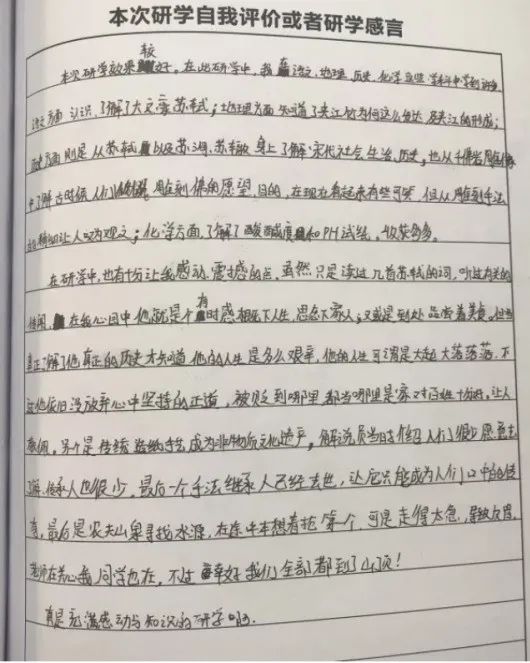 本次研学自我评价或者研学感言
本次研学效果较好。在此研学中,我在语文、地理、历史、化学这些学科中学到许多
语文方面认识、了解了大文豪苏轼;地理方面知道了夹江竹为何这么发达及夹江的形成;
历史方面则是从苏轼以及苏洵、苏辙身上了解宋代社会、生活、历史,也从千佛岩周围佛像
中了解古时候人们雕到佛的愿望、目的,在现在看起来有些可笑,但从雕刻手法
的精细让人叹为观止;化学方面,了解了酸碱度和PH试纸。收获多多。
在研学中,也有十分让我感动、震撼的点,虽然只是读过几首苏轼的词,听过有关的
传闻,在我心目中他就是个有时感相思下人生,思念下家人;又或是到处品尝着美食。但当
真正了解了他真正的历史才知道他的人生是多么艰辛,他的人生可谓是大起大落落落,不
过他依旧没放弃心中坚持的正道,被贬到哪里都当哪里是家对百姓十分好。让人
敬佩。另个是传统造纸手艺成为非物质文化遗产,解说员当时介绍人们很少愿意去
了解、传承人也很少,最后一个手法继承人已经去世,让它只能成为人们口中的传
奇,最后是农夫山泉寻找水源,在途中本想着抢第一个,可是走得太急,导致
老师在关心我,同学也在,不过幸好我们全部都到了山顶!
真是充满感动与知识的研学啊。